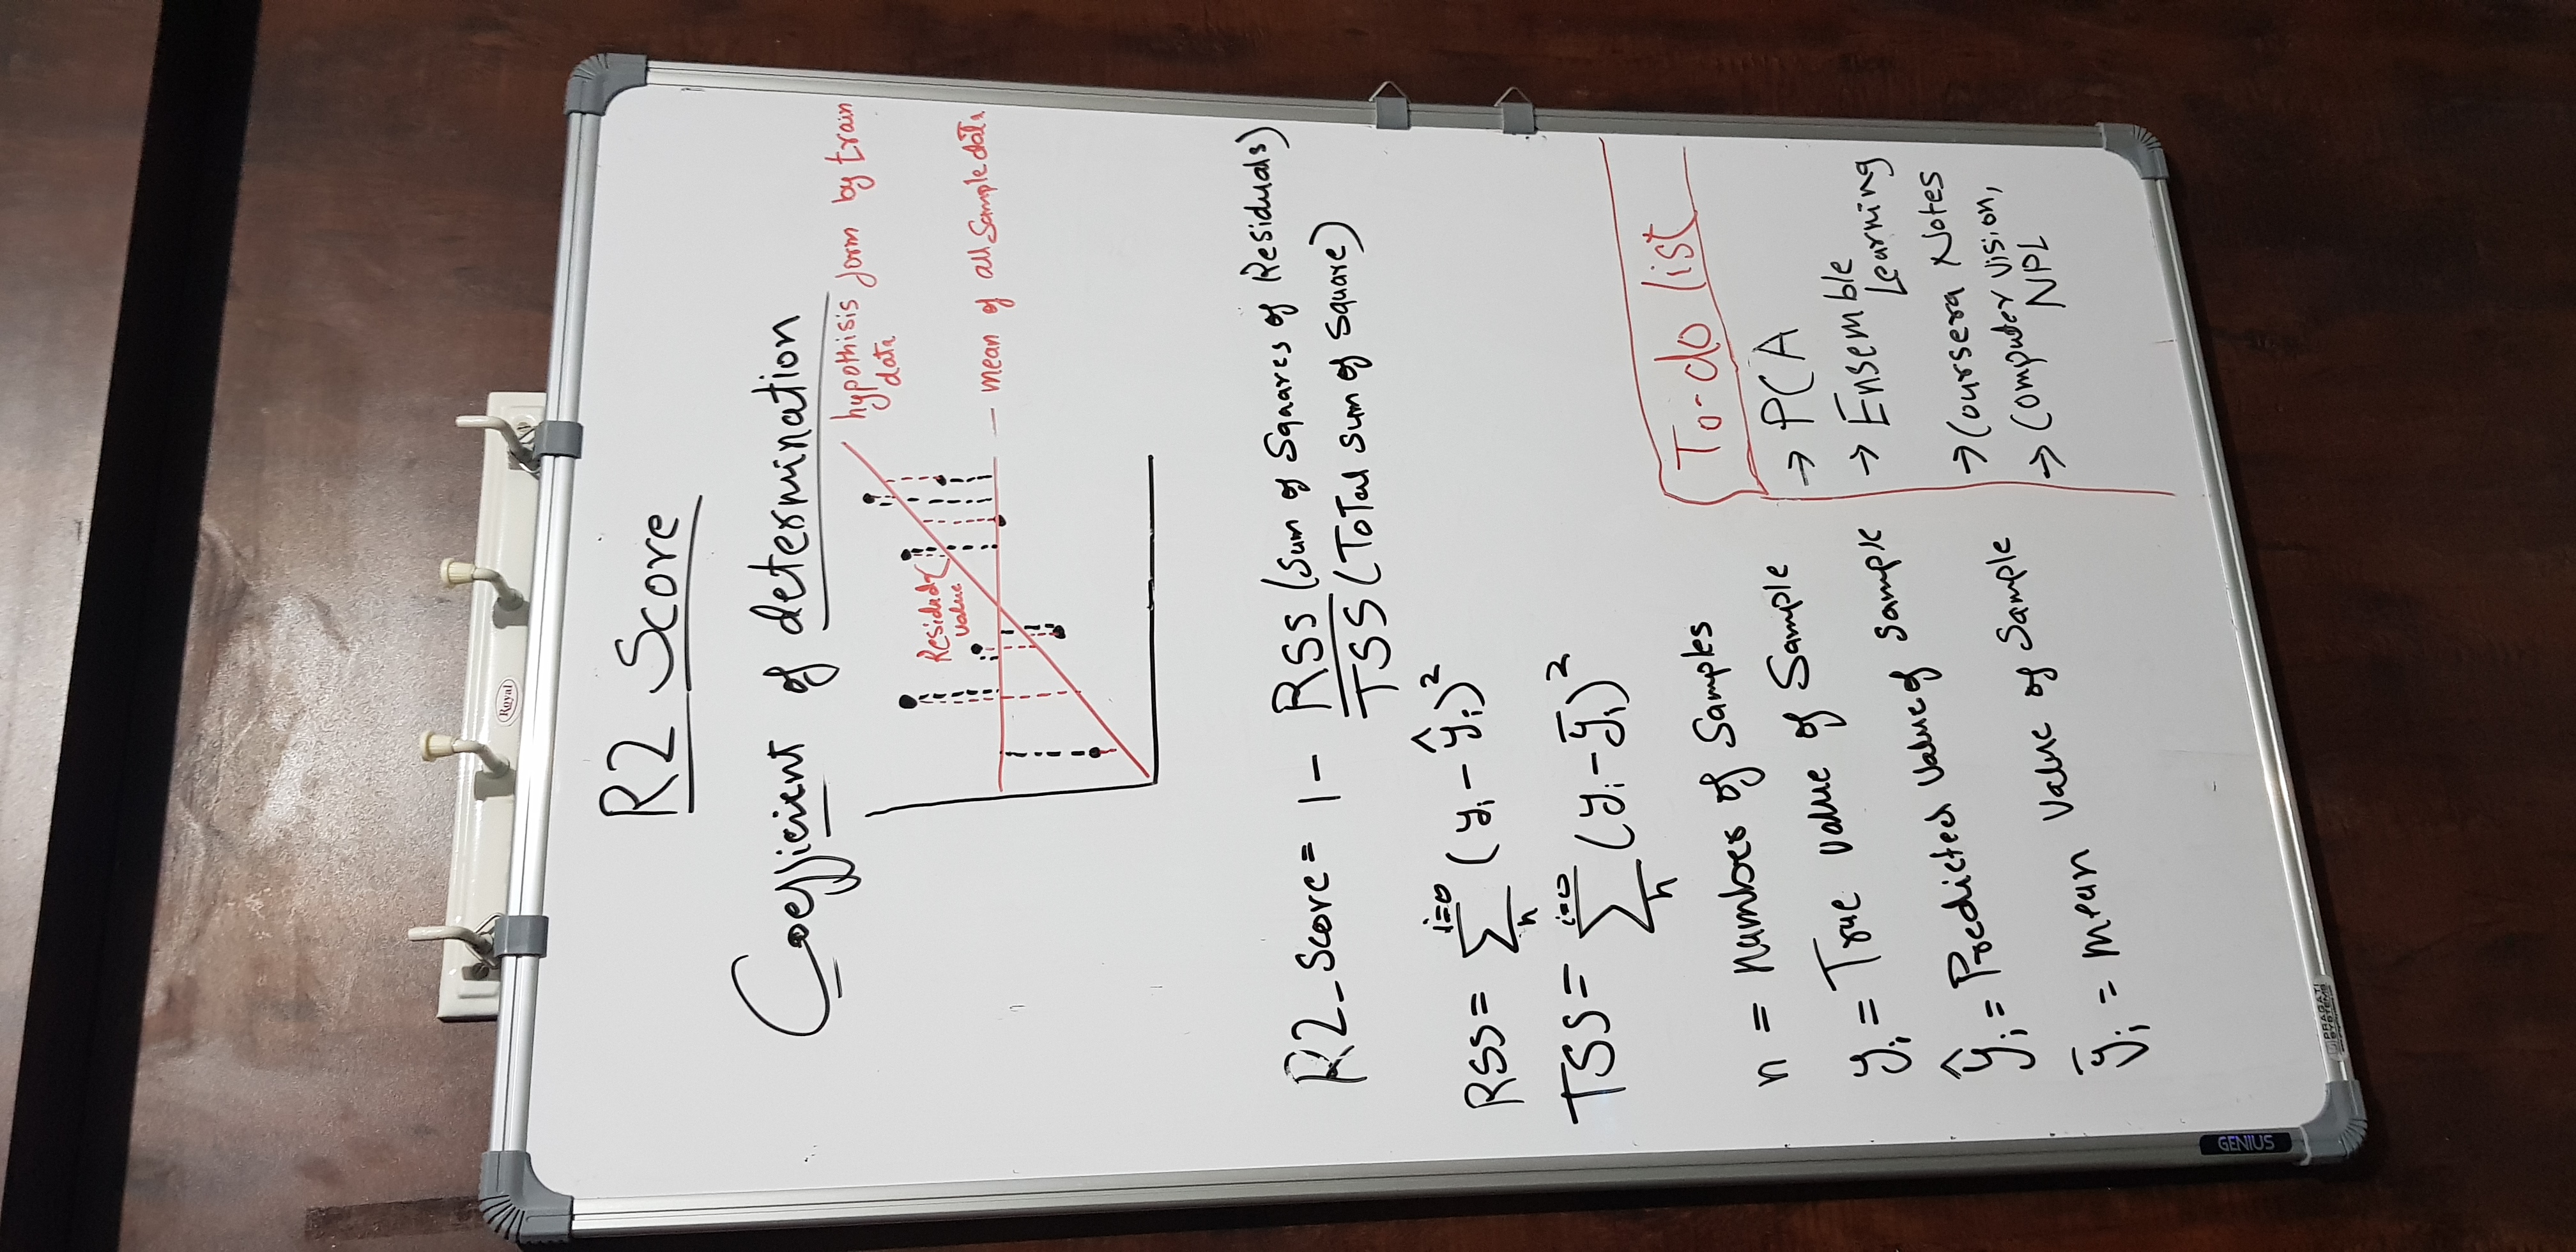 Royal
R2 Score
Coefficient of determination
hypothisis form by train
data
Residual
value
mean of all Sample data
R2_Score = 1 - RSS (Sum of Squares of Residuals)
TSS (Total Sum of Square)
i=0
RSS = ∑ (yi - ŷi)²
n
i=0
TSS = ∑ (yi - ȳi)²
n
n = number of Samples
yi = True value of Sample
ŷi = Predicted Value of Sample
ȳi = mean Value of Sample
To-do list
→ PCA
→ Ensemble
Learning
→ Coursera Notes
→ Computer vision,
NPL
GENIUS
PRAGATI
SYSTEMS